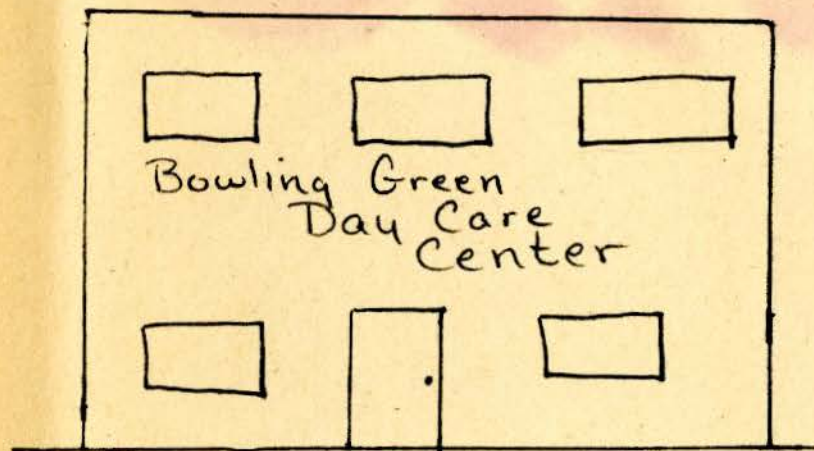 Bowling Green
Day Care
Center